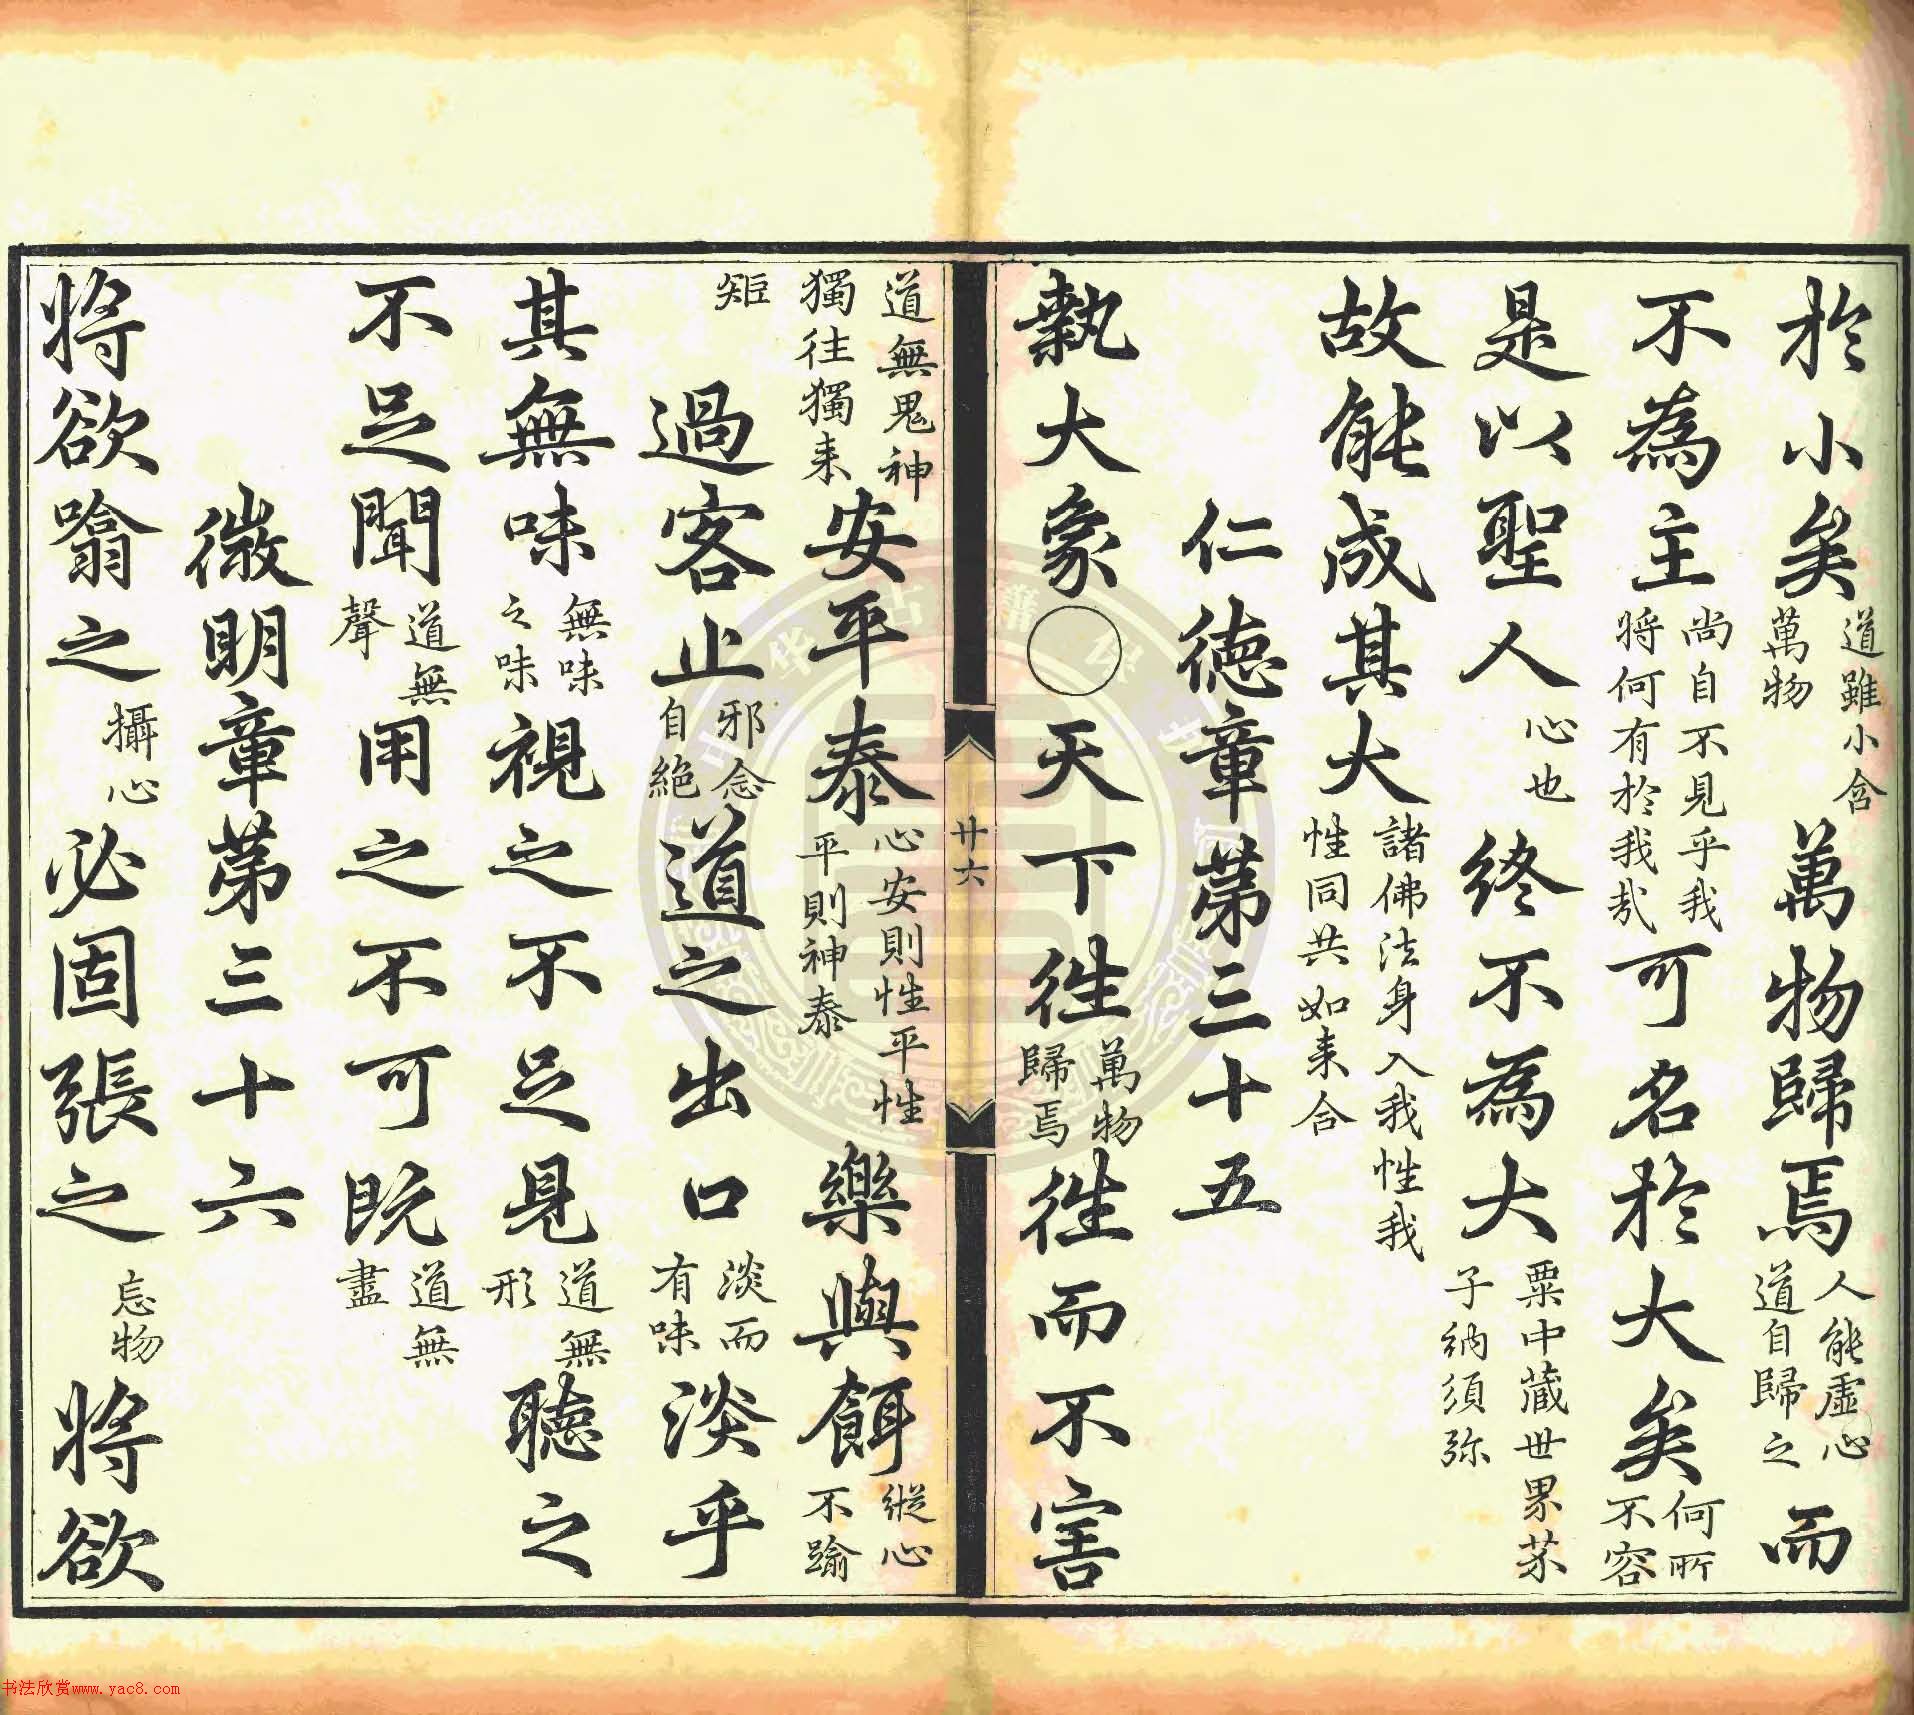 於小矣道雖小含萬物萬物歸焉人能虛心道自歸之而
不為主尚自不見乎我將何有於我哉可名於大矣何所不容
是以聖人心也終不為大粟中藏世界芥子納須弥
故能成其大諸佛法身入我性我性同共如来合
仁德章第三十五
執大象○天下往萬物歸焉往而不害
廿六
道無鬼神獨往獨来安平泰心安則性平性平則神泰樂與餌縱心不踰
矩
過客止邪念自絶道之出口淡而有味淡乎
其無味無味之味視之不足見道無形聽之
不足聞道無聲用之不可既道無盡
微明章第三十六
將欲噏之攝心必固張之忘物將欲
书法欣赏www.yac8.com